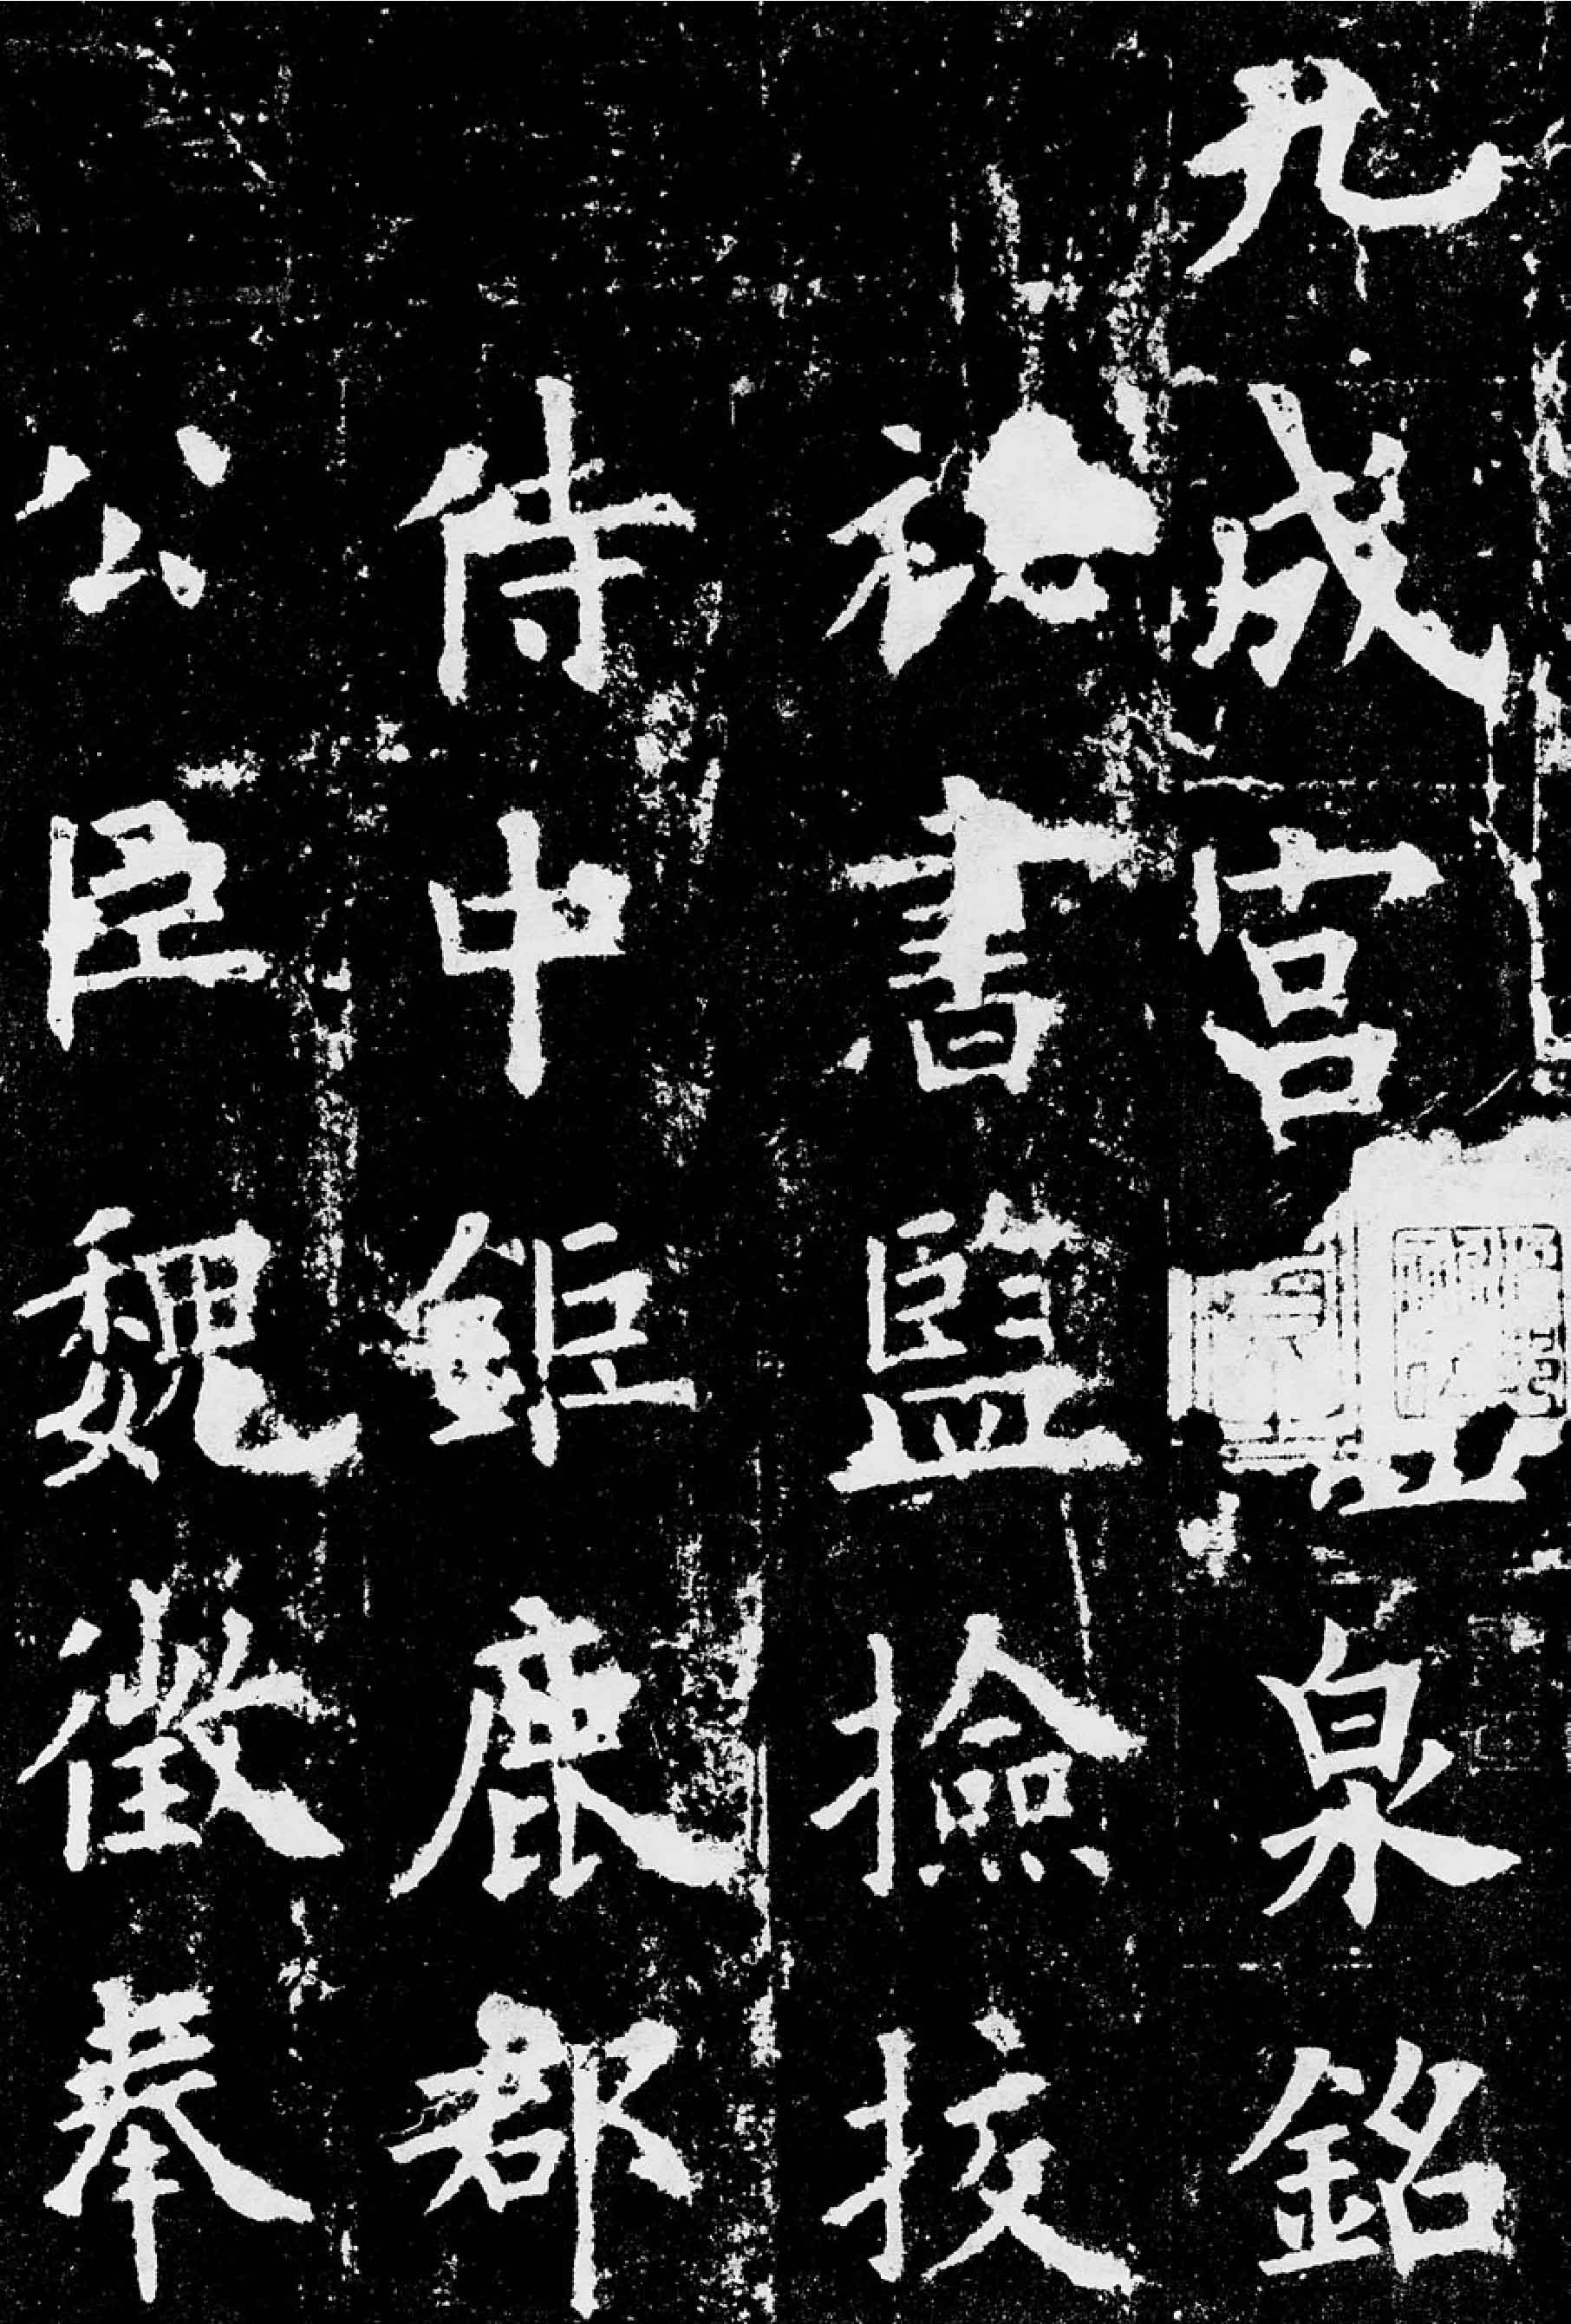 九成宮醴泉銘
秘書監撿挍
侍中鉅鹿郡
公臣魏徵奉